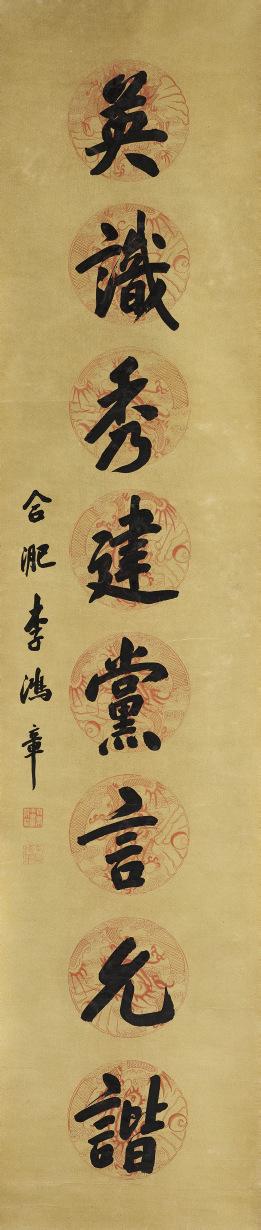 英識秀建黨言允諧
合淝李鴻章